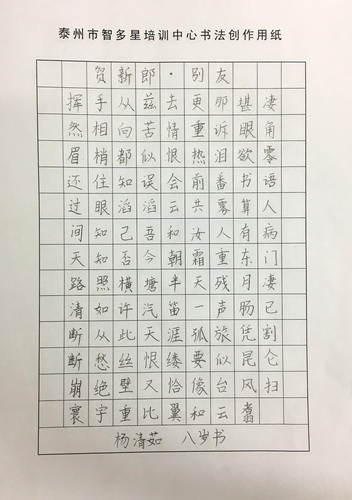 泰州市智多星培训中心书法创作用纸
贺新郎·别友
挥手从兹去更那堪凄
然相向苦情重诉眼角
眉梢都似恨热泪欲零
还住知误会前番书语
过眼滔滔云共雾算人
间知己吾和汝人有病
天知否今朝霜重东门
路照横塘半天残月凄
清如许汽笛一声肠已
断从此天涯孤旅凭割
断愁丝恨缕要似昆仑
崩绝壁又恰像台风扫
寰宇重比翼和云翥
杨清茹 八岁书